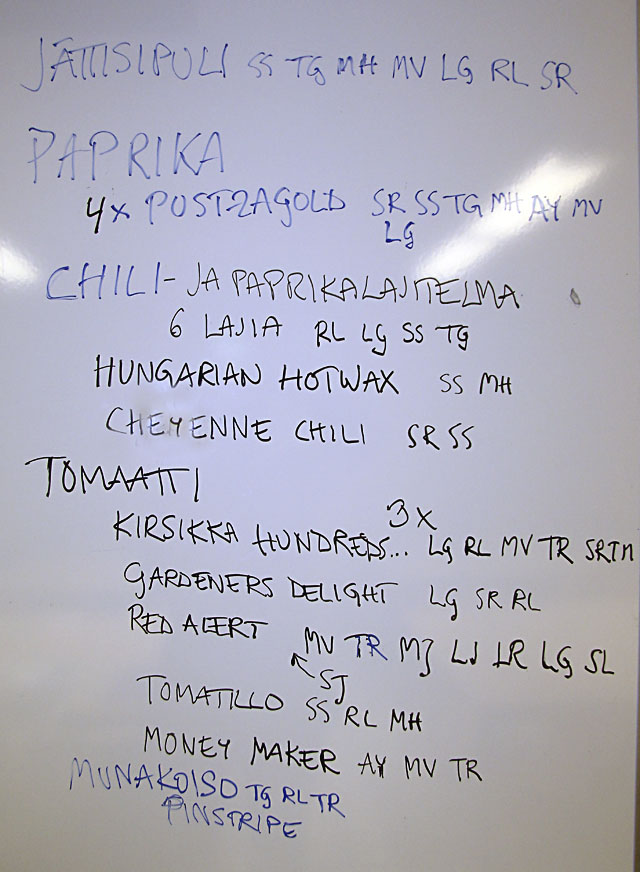 JÄTTISIPULI SS TG MH MV LG RL SR
PAPRIKA
4x POSTZAGOLD SR SS TG MH AY MV
LG
CHILI- JA PAPRIKALAJITELMA
6 LAJIA RL LG SS TG
HUNGARIAN HOTWAX SS MH
CHEYENNE CHILI SR SS
TOMAATTI
3X
KIRSIKKA HUNDREDS... LG RL MV TR SR TM
GARDENERS DELIGHT LG SR RL
RED ALERT MV TR MJ LJ LR LG SL
SJ
TOMATILLO SS RL MH
MONEY MAKER AY MV TR
MUNAKOISO TG RL TR
PINSTRIPE